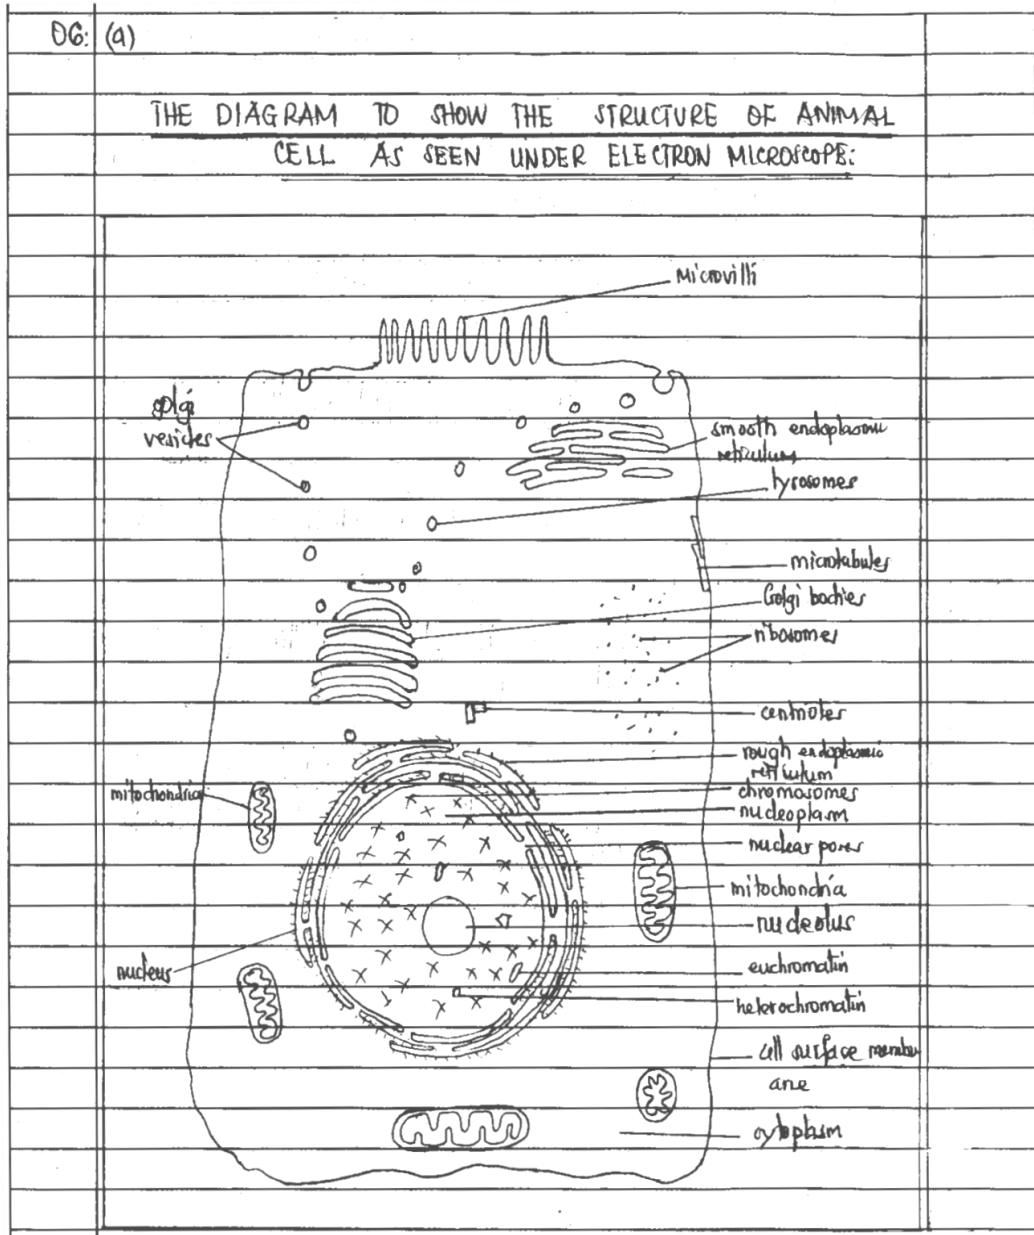 06: (a)
THE DIAGRAM TO SHOW THE STRUCTURE OF ANIMAL
CELL AS SEEN UNDER ELECTRON MICROSCOPE:
Microvilli
golgi
vesicles
smooth endoplasmic
reticulum
lysosomes
microtubules
Golgi bodies
ribosomes
centrioles
rough endoplasmic
reticulum
chromosomes
mitochondria
nucleoplasm
nuclear pores
mitochondria
nucleolus
nucleus
euchromatin
heterochromatin
cell surface member
ane
cytoplasm